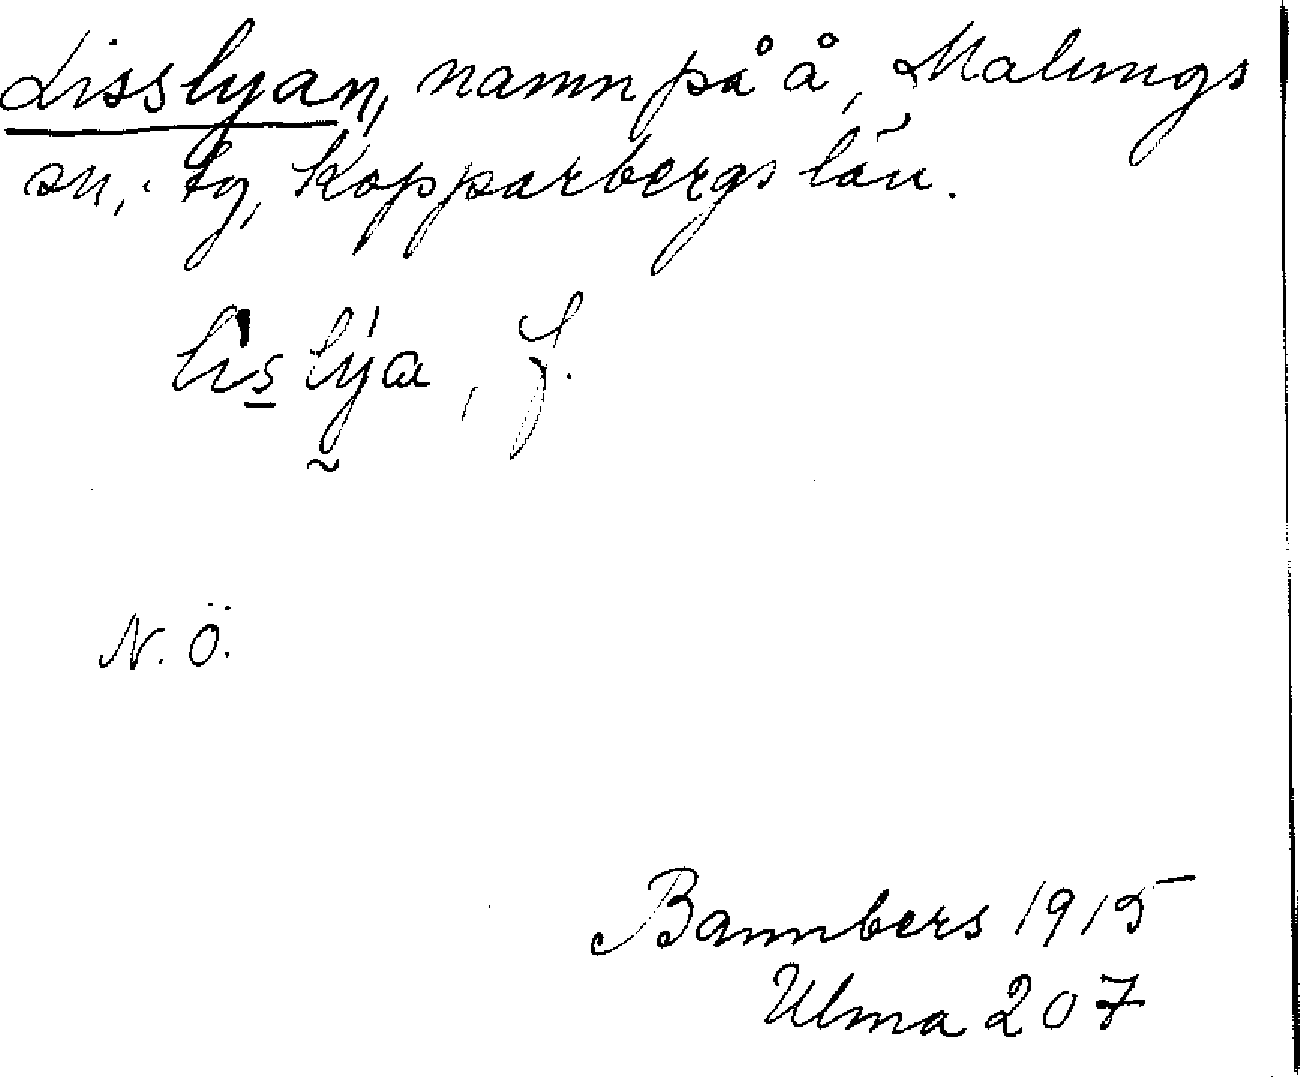 Lisslyan, namn på å, Malungs
sn,
Kopparbergs län.
f.
N. Ö.
Bannbers 1915
Ulma 207